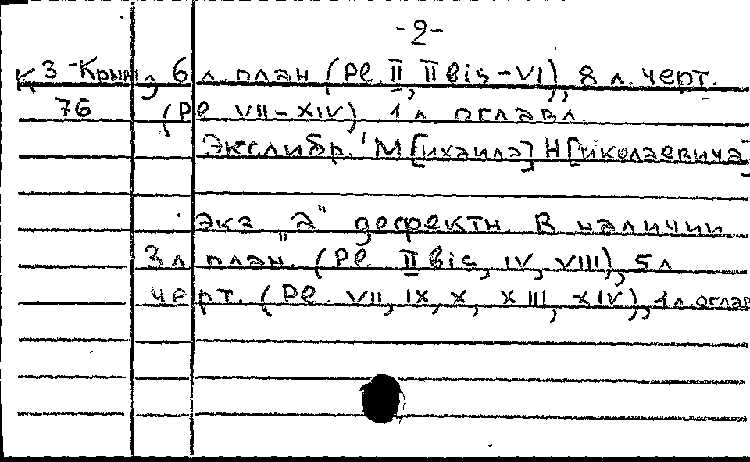 -2-
К 3-Крым, 6 л. план (Pl. II, II bis-VI), 8 л. черт.
76 (Pl VII-XIV), 1 л. оглавл.
Экслибр. М[ихаила] Н[иколаевича]
Экз. "а" дефектн. В наличии
3 л план. (Pl. II bis, IV, VIII), 5 л
черт. (Pl. VII, IX, X, XIII, XIV), 1 л. оглав